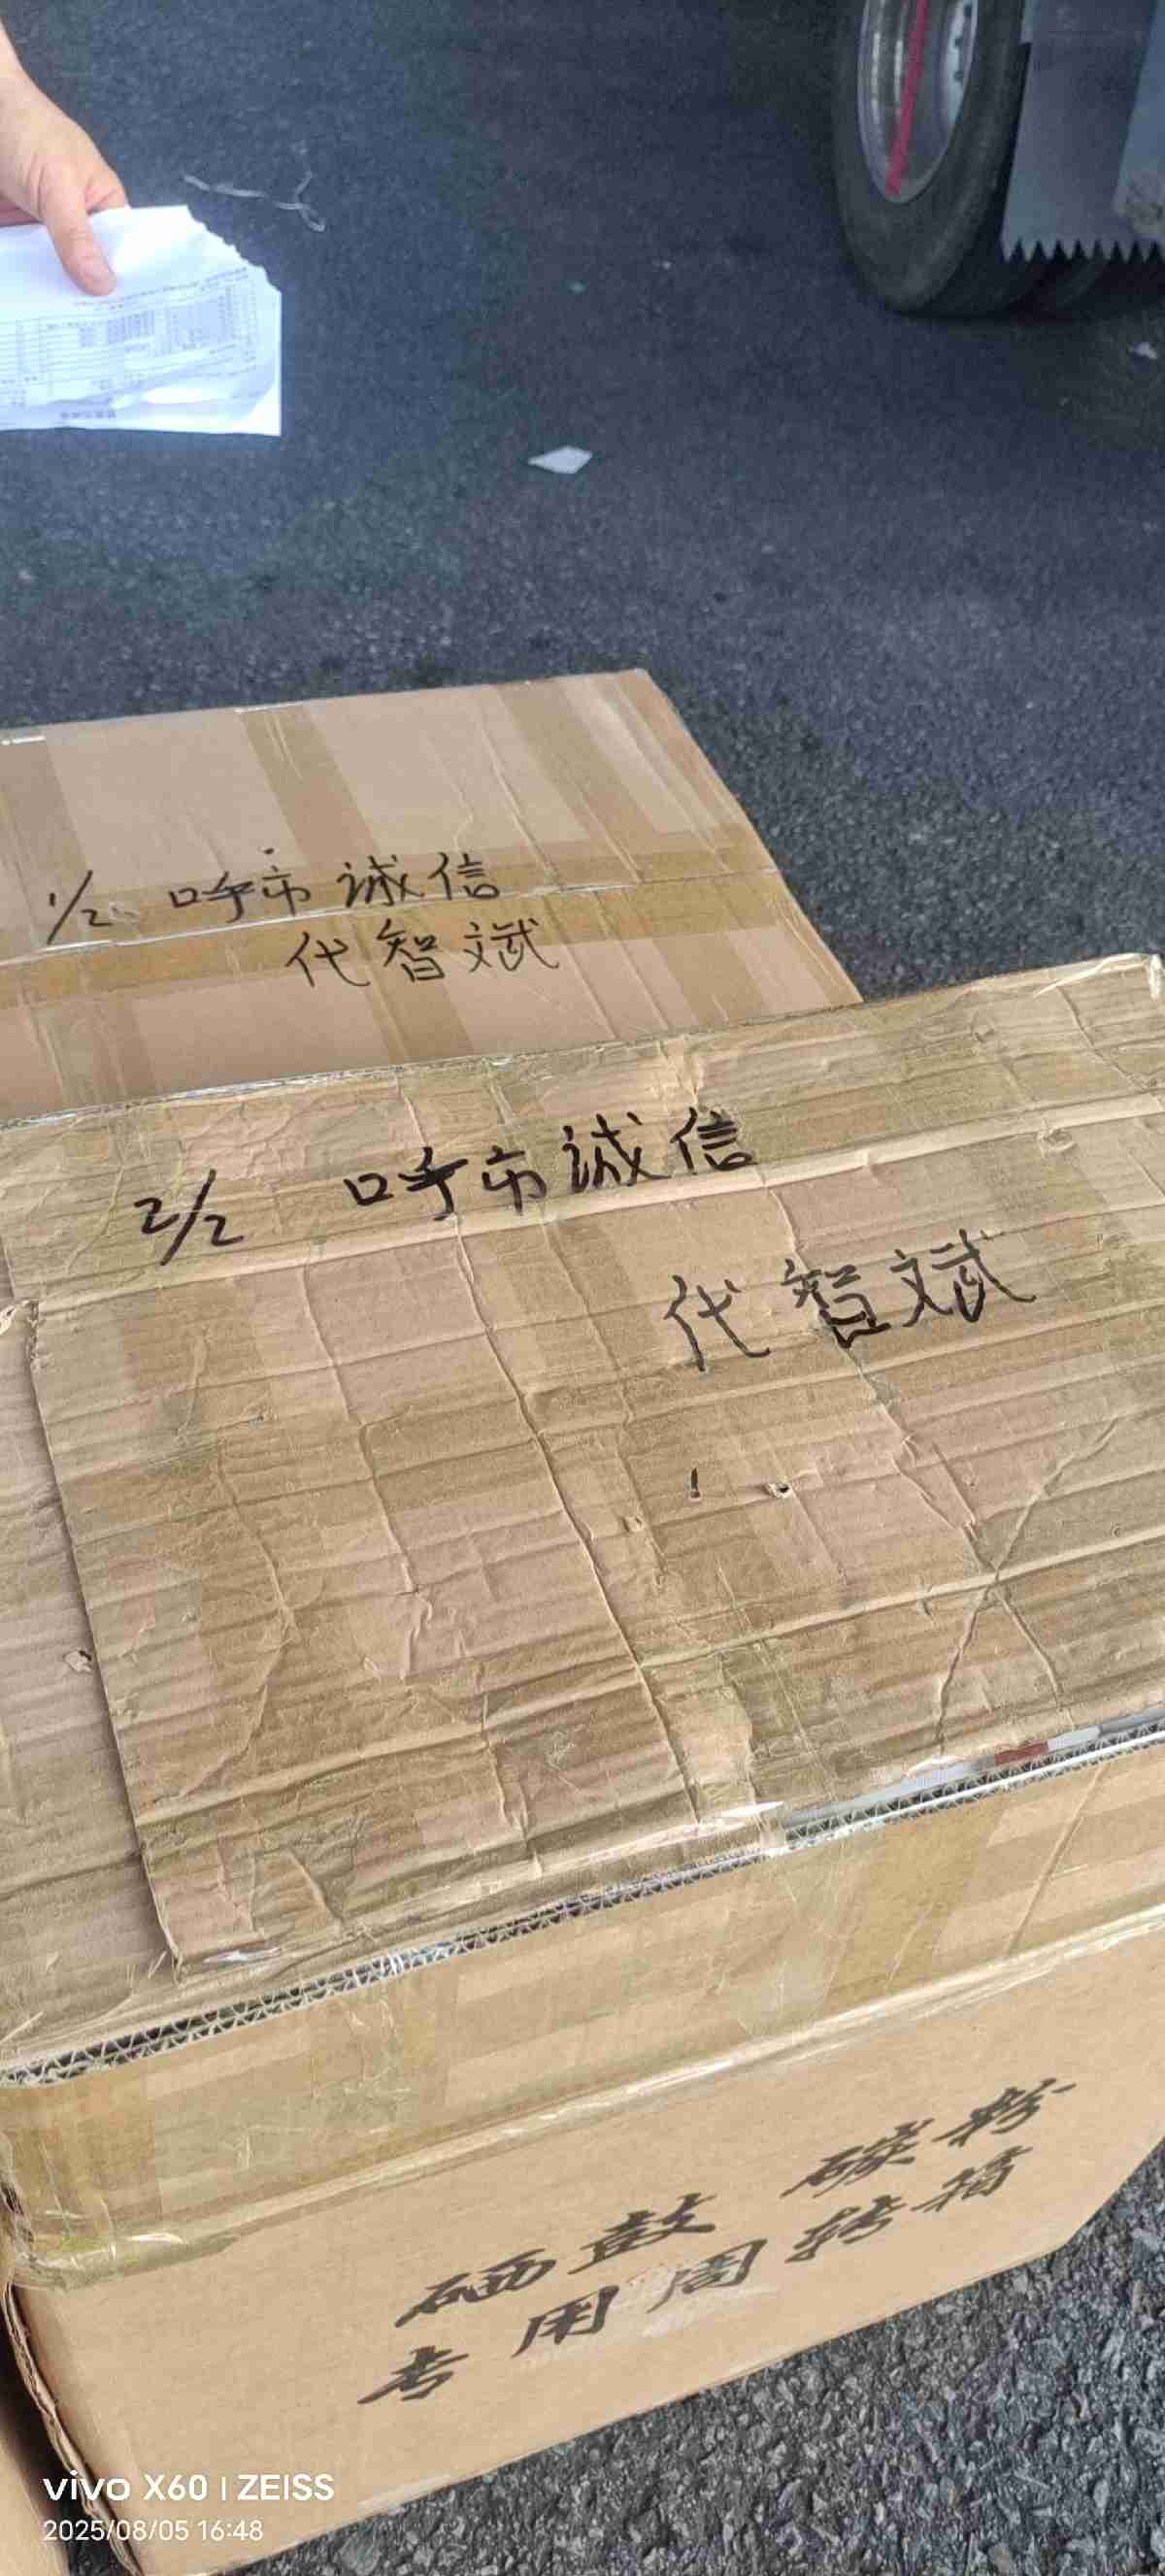 1/2 呼市诚信
代智斌
2/2 呼市诚信
代智斌
硒鼓 碳粉
专用周转箱
vivo X60 | ZEISS
2025/08/05 16:48